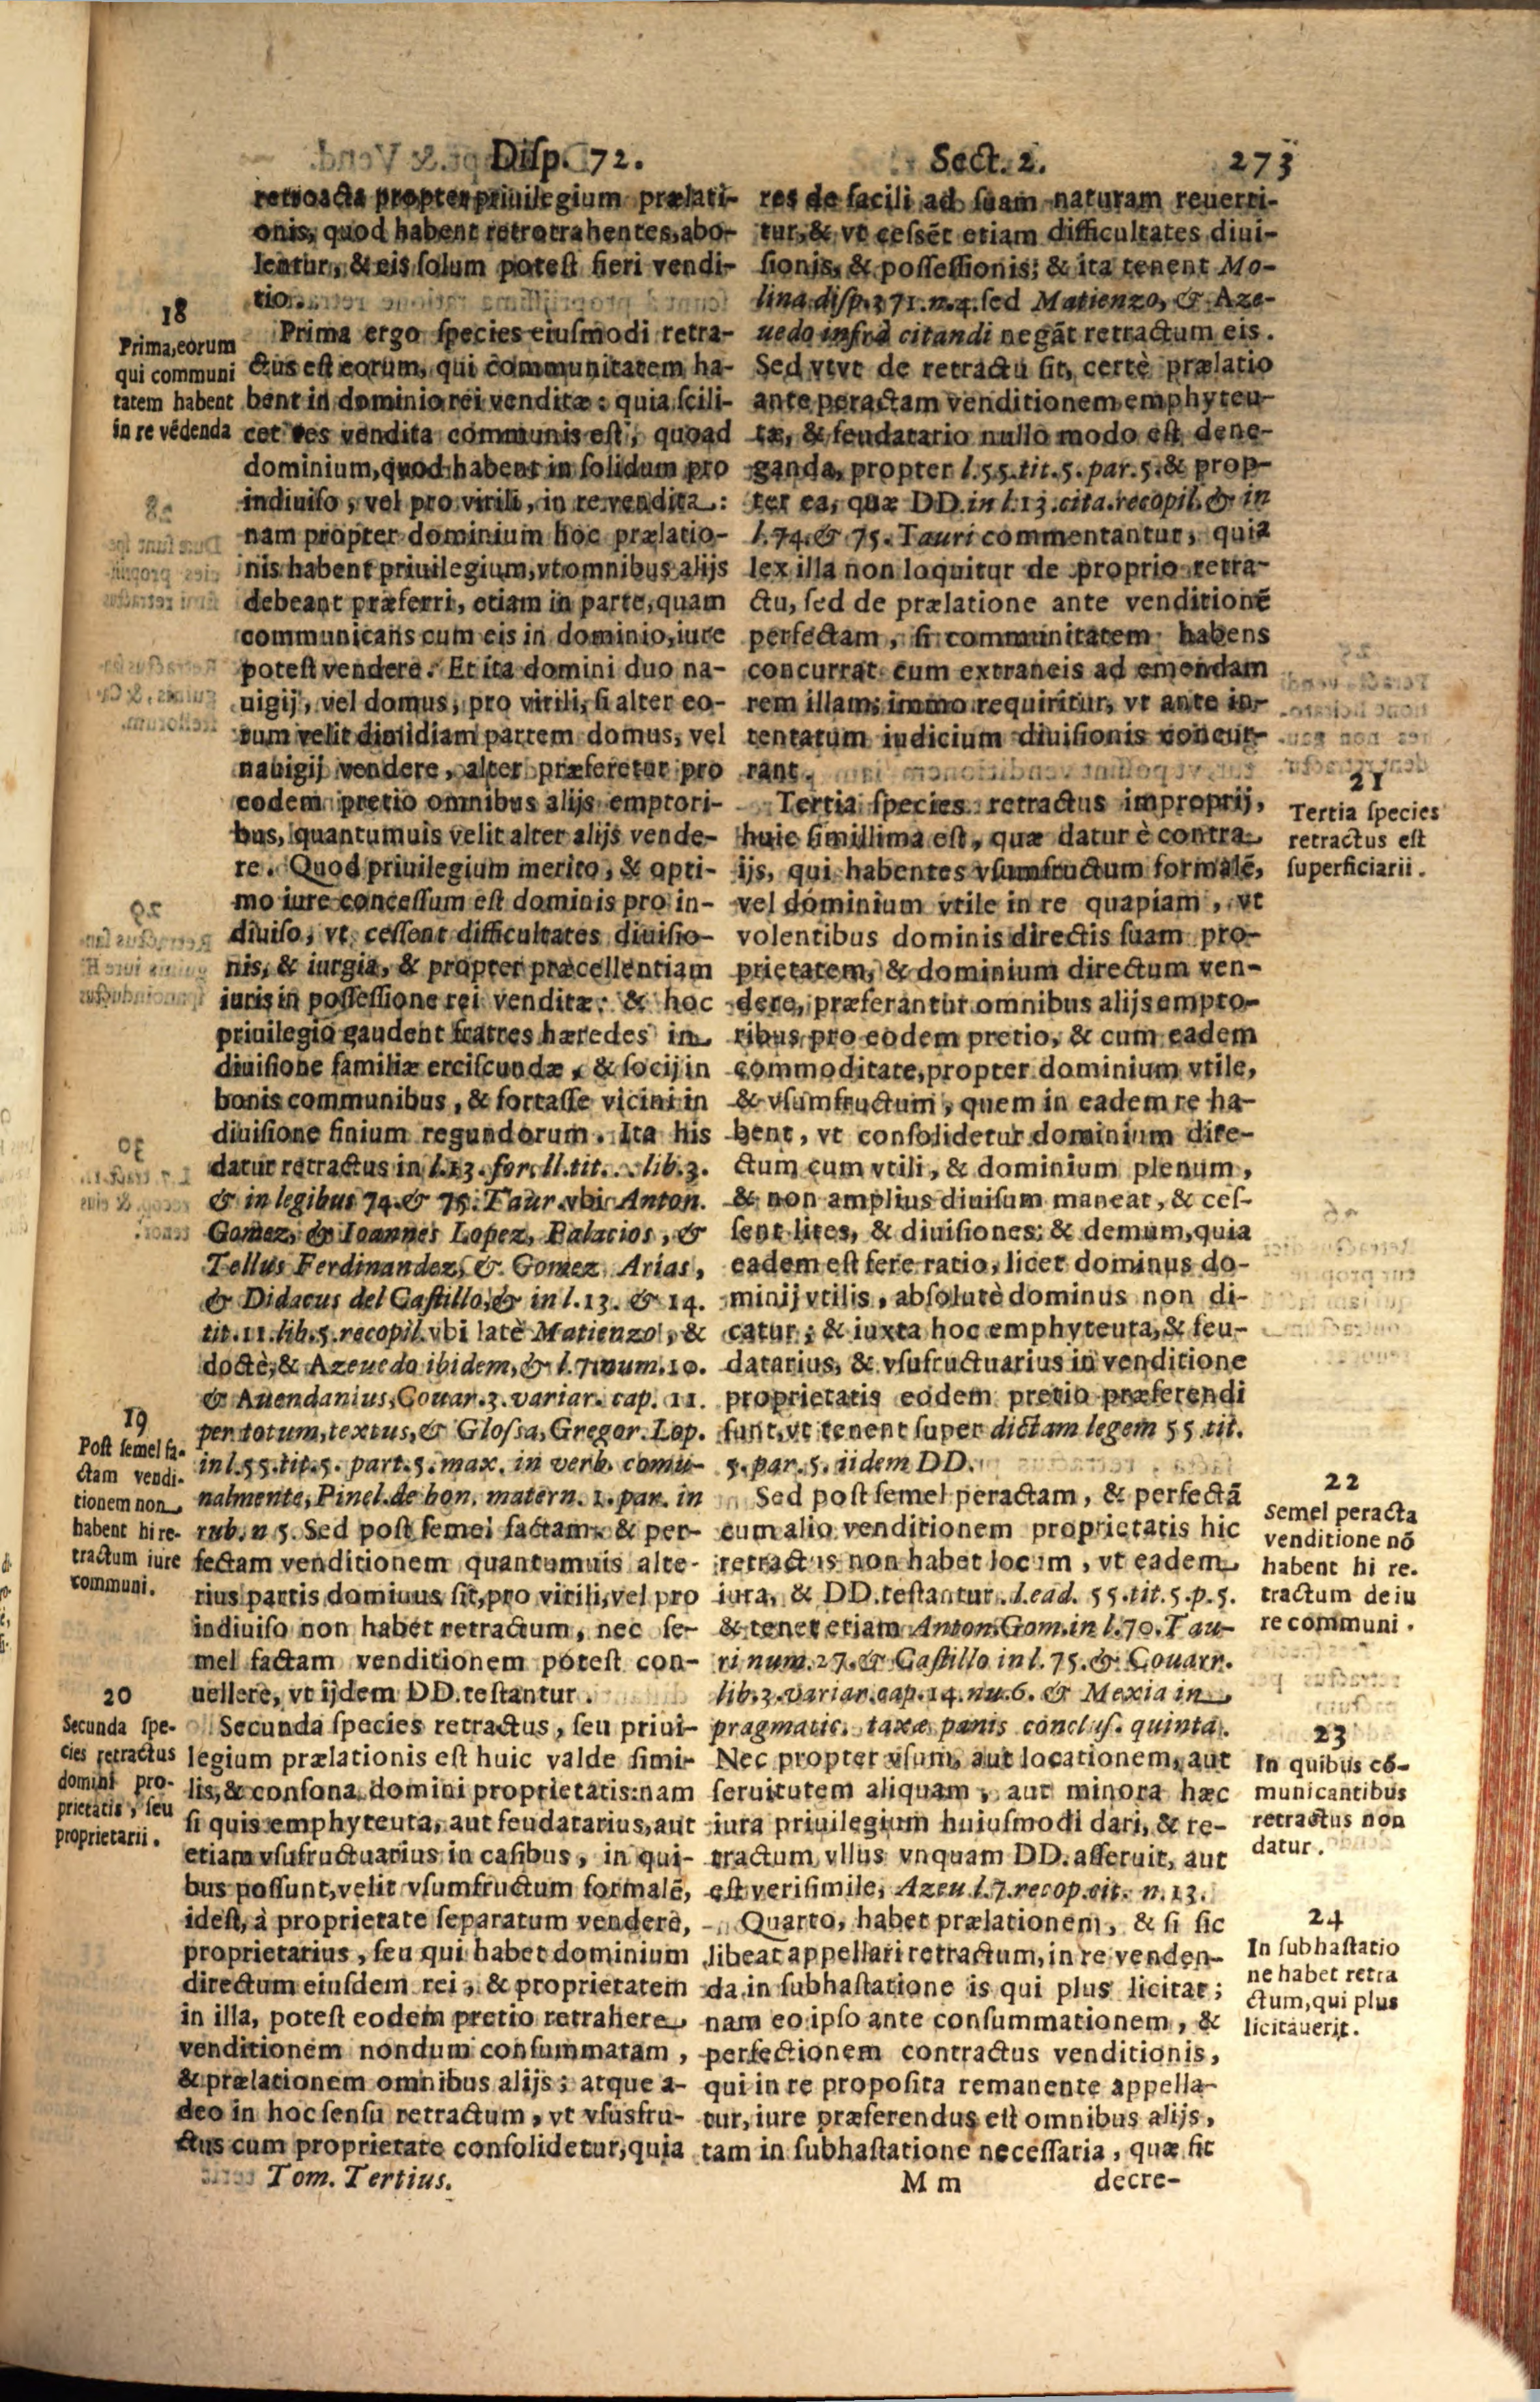 Disp. 72. Sect. 2. 273
retroacta propter priuilegium prælati-
onis, quod habent retrotrahentes, abo-
lentur, & eis solum potest fieri vendi-
tio.
18
Prima, eorum
qui communi
tatem habent
in re vēdenda
Prima ergo species eiusmodi retra-
ctus est eorum, qui communitatem ha-
bent in dominio rei venditæ: quia scili-
cet res vendita communis est, quoad
dominium, quod habent in solidum pro
indiuiso, vel pro virili, in re vendita:
nam propter dominium hoc prælatio-
nis habent priuilegium, vt omnibus alijs
debeant præferri, etiam in parte, quam
communicans cum eis in dominio, iure
potest vendere. Et ita domini duo na-
uigij, vel domus, pro virili, si alter eo-
rum velit dimidiam partem domus, vel
nauigij vendere, alter præferetur pro
eodem pretio omnibus alijs emptori-
bus, quantumuis velit alter alijs vende-
re. Quod priuilegium merito, & opti-
mo iure concessum est dominis pro in-
diuiso, vt cessent difficultates diuisio-
nis, & iurgia, & propter præcellentiam
iuris in possessione rei venditæ: & hoc
priuilegio gaudent fratres hæredes in
diuisione familiæ erciscundæ, & socij in
bonis communibus, & fortasse vicini in
diuisione finium regundorum. Ita his
datur retractus in l.13. for. ll. tit. . . lib.3.
& in legibus 74. & 75. Taur. vbi Anton.
Gomez, & Ioannes Lopez, Palacios, &
Tellus Ferdinandez, & Gomez Arias,
& Didacus del Castillo, & in l.13. & 14.
tit.11.lib.5.recopil. vbi latè Matienzo, &
doctè, & Azeuedo ibidem, & l.7. num.10.
& Auendanius, Couar.3. variar. cap. 11.
per totum, textus, & Glossa, Gregor. Lop.
in l.55.tit.5. part.5. max. in verb. comu-
nalmente, Pinel. de bon. matern. 1. par. in
rub. n 5. Sed post semel factam, & per-
fectam venditionem quantumuis alte-
rius partis dominus sit, pro virili, vel pro
indiuiso non habet retractum, nec se-
mel factam venditionem potest con-
uellere, vt ijdem DD. testantur.
19
Post semel fa-
ctam vendi-
tionem non
habent hi re-
tractum iure
communi.
20
Secunda spe-
cies retractus
domini pro-
prietatis, seu
proprietarii.
Secunda species retractus, seu priui-
legium prælationis est huic valde simi-
lis, & consona domini proprietatis: nam
si quis emphyteuta, aut feudatarius, aut
etiam vsufructuarius in casibus, in qui-
bus possunt, velit vsumfructum formalē,
idest, à proprietate separatum vendere,
proprietarius, seu qui habet dominium
directum eiusdem rei, & proprietatem
in illa, potest eodem pretio retrahere
venditionem nondum consummatam,
& prælationem omnibus alijs; atque a-
deo in hoc sensu retractum, vt vsusfru-
ctus cum proprietate consolidetur, quia
Tom. Tertius.
res de facili ad suam naturam reuerti-
tur, & vt cessēt etiam difficultates diui-
sionis, & possessionis; & ita tenent Mo-
lina disp.371.n.4. sed Matienzo, & Aze-
uedo infrà citandi negāt retractum eis.
Sed vtvt de retractu sit, certè prælatio
ante peractam venditionem emphyteu-
tæ, & feudatario nullo modo est dene-
ganda, propter l.55.tit.5.par.5. & prop-
ter ea, quæ DD. in l.13.cita.recopil. & in
l.74. & 75. Tauri commentantur, quia
lex illa non loquitur de proprio retra-
ctu, sed de prælatione ante venditionē
perfectam, si communitatem habens
concurrat cum extraneis ad emendam
rem illam; immo requiritur, vt ante in-
tentatum iudicium diuisionis concur-
rant.
21
Tertia species
retractus est
superficiarii.
Tertia species retractus improprij,
huic simillima est, quæ datur è contra
ijs, qui habentes vsumfructum formalē,
vel dominium vtile in re quapiam, vt
volentibus dominis directis suam pro-
prietatem, & dominium directum ven-
dere, præferantur omnibus alijs empto-
ribus pro eodem pretio, & cum eadem
commoditate, propter dominium vtile,
& vsumfructum, quem in eadem re ha-
bent, vt consolidetur dominium dire-
ctum cum vtili, & dominium plenum,
& non amplius diuisum maneat, & ces-
sent lites, & diuisiones; & demum, quia
eadem est fere ratio, licet dominus do-
minij vtilis, absolutè dominus non di-
catur; & iuxta hoc emphyteuta, & feu-
datarius, & vsufructuarius in venditione
proprietatis eodem pretio præferendi
sunt, vt tenent super dictam legem 55 tit.
5. par. 5. iidem DD.
22
Semel peracta
venditione nō
habent hi re-
tractum de iu
re communi.
Sed post semel peractam, & perfectā
cum alio venditionem proprietatis hic
retractus non habet locum, vt eadem
iura, & DD. testantur. l. ead. 55.tit.5.p.5.
& tenet etiam Anton. Gom. in l.70. Tau-
ri num.27. & Castillo in l.75. & Couarr.
lib.3.variar.cap.14.nu.6. & Mexia in
pragmatic. taxæ panis conclus. quinta.
Nec propter vsum, aut locationem, aut
seruitutem aliquam, aut minora hæc
iura priuilegium huiusmodi dari, & re-
tractum vllus vnquam DD. asseruit, aut
est verisimile, Azeu. l.7. recop. cit. n. 13.
23
In quibus cō-
municantibus
retractus non
datur.
24
In subhastatio
ne habet retra
ctum, qui plus
licitauerit.
Quarto, habet prælationem, & si sic
libeat appellari retractum, in re venden-
da in subhastatione is qui plus licitat;
nam eo ipso ante consummationem, &
perfectionem contractus venditionis,
qui in re proposita remanente appella-
tur, iure præferendus est omnibus alijs,
tam in subhastatione necessaria, quæ fit
M m decre-